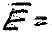 E̅ =